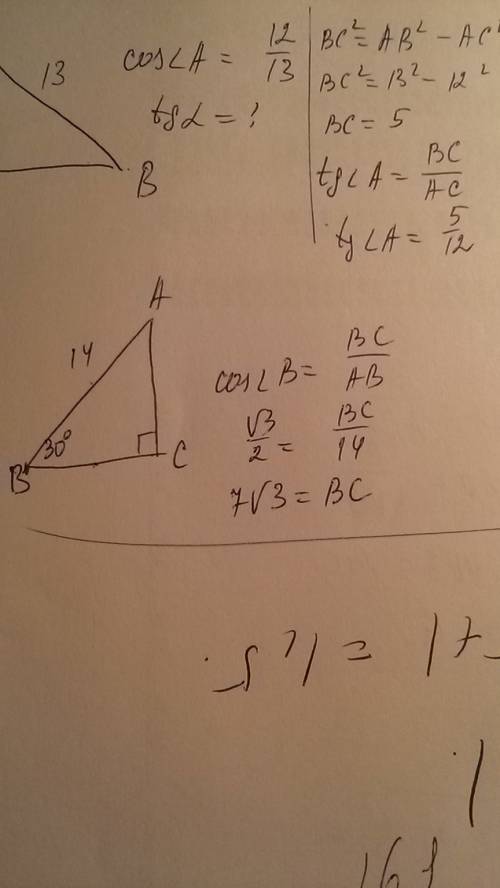 13
B
cos∠A = 12/13
tg∠ = ?
BC² = AB² − AC²
BC² = 13² − 12²
BC = 5
tg∠A = BC/AC
tg∠A = 5/12
A
14
30°
B
C
cos∠B = BC/AB
√3/2 = BC/14
7√3 = BC